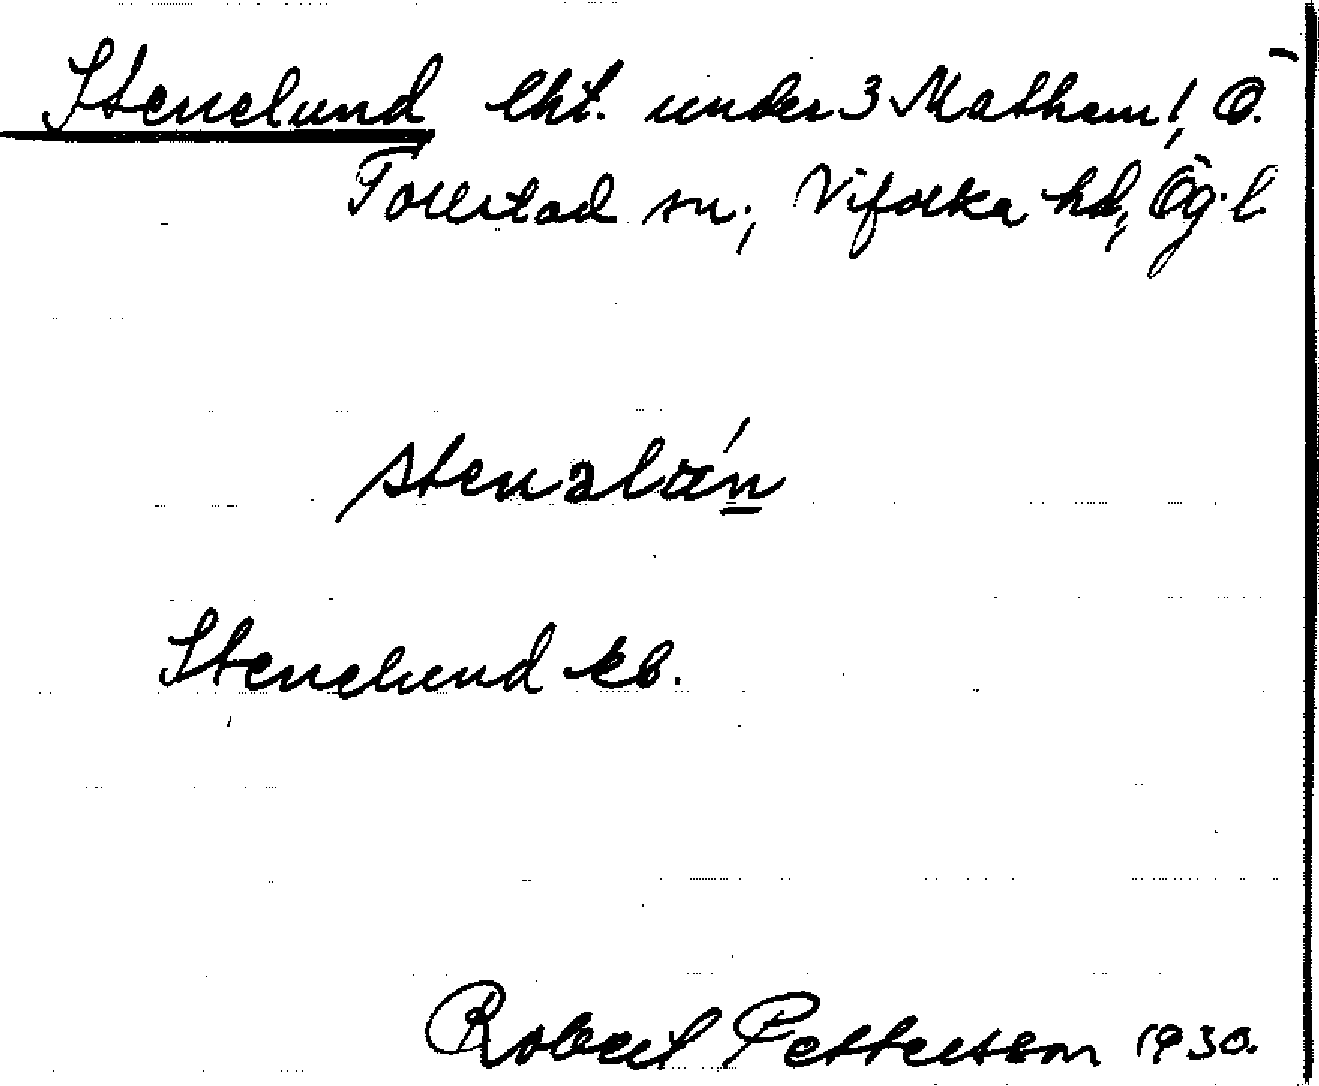 Stenelund lht. under 3 Mathem!, Ö.
Tollstad sn., Vifolka hd, Ög. l.
Stenelund kb.
Robert Petterson 1930.